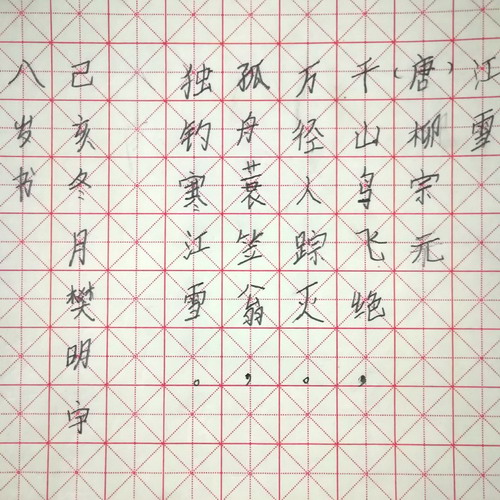 江雪
（唐）柳宗元
千山鸟飞绝，
万径人踪灭。
孤舟蓑笠翁，
独钓寒江雪。
己亥冬月樊明宇
八岁书